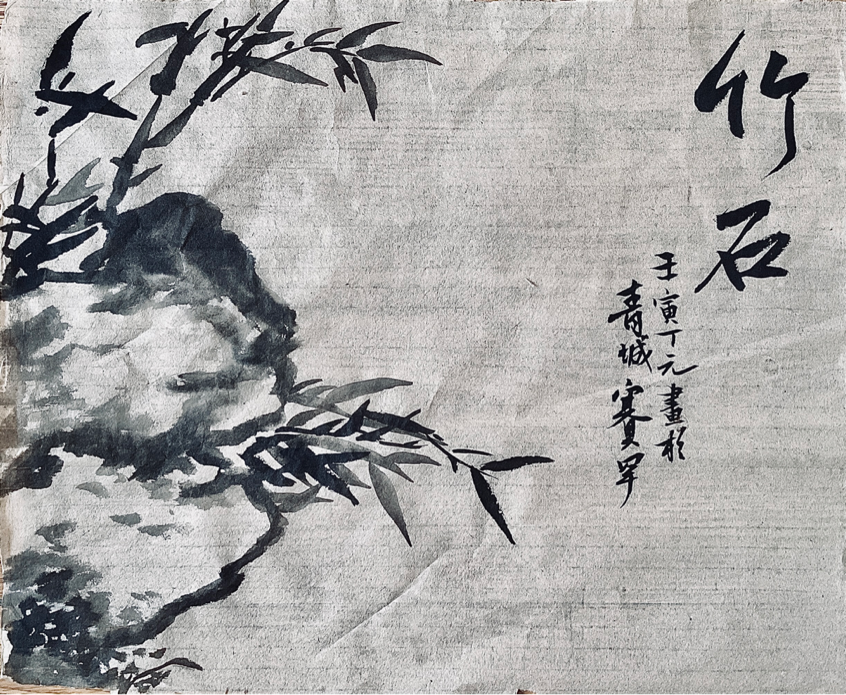 竹石
壬寅丁元畫於
青城 賽罕